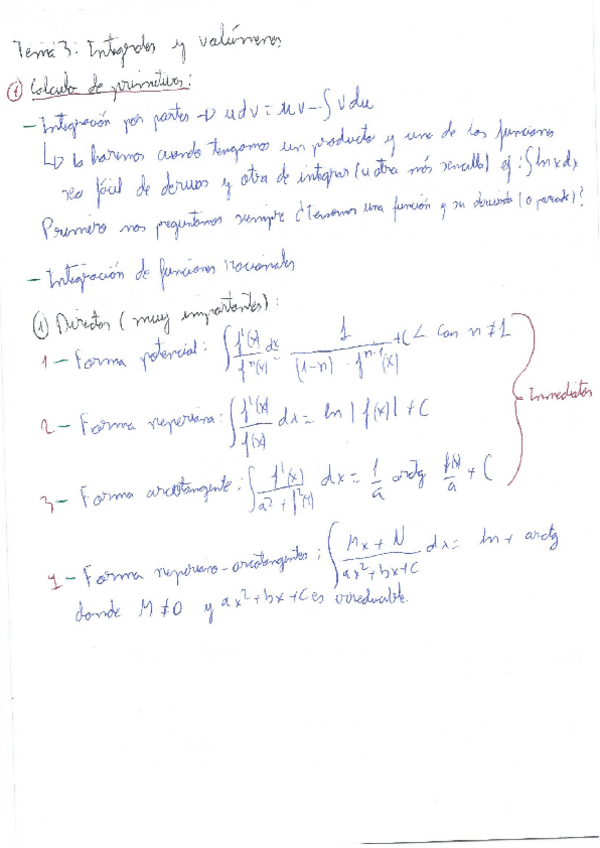 Tema 3: Integrales y volúmenes
① Cálculo de primitivas:
- Integración por partes → udv = uv - ∫ v du
↳ lo haremos cuando tengamos un producto y una de las funciones
sea fácil de derivar y otra de integrar (u otra más sencilla) ej: ∫ ln x dx
Primero nos preguntamos siempre ¿Tenemos una función y su derivada (o parecida)?
- Integración de funciones racionales
① Directas (muy importantes):
1 - Forma potencial: ∫ f'(x)/fⁿ(x) dx = 1/((1-n) · fⁿ⁻¹(x)) + C ∠ Con n ≠ 1
2 - Forma neperiana: ∫ f'(x)/f(x) dx = ln |f(x)| + C
Inmediatas
3 - Forma arcotangente: ∫ f'(x)/(a² + f²(x)) dx = 1/a arctg f(x)/a + C
4 - Forma neperiano-arcotangente: ∫ (Mx + N)/(ax² + bx + c) dx = ln + arctg
donde M ≠ 0 y ax² + bx + c es irreducible.